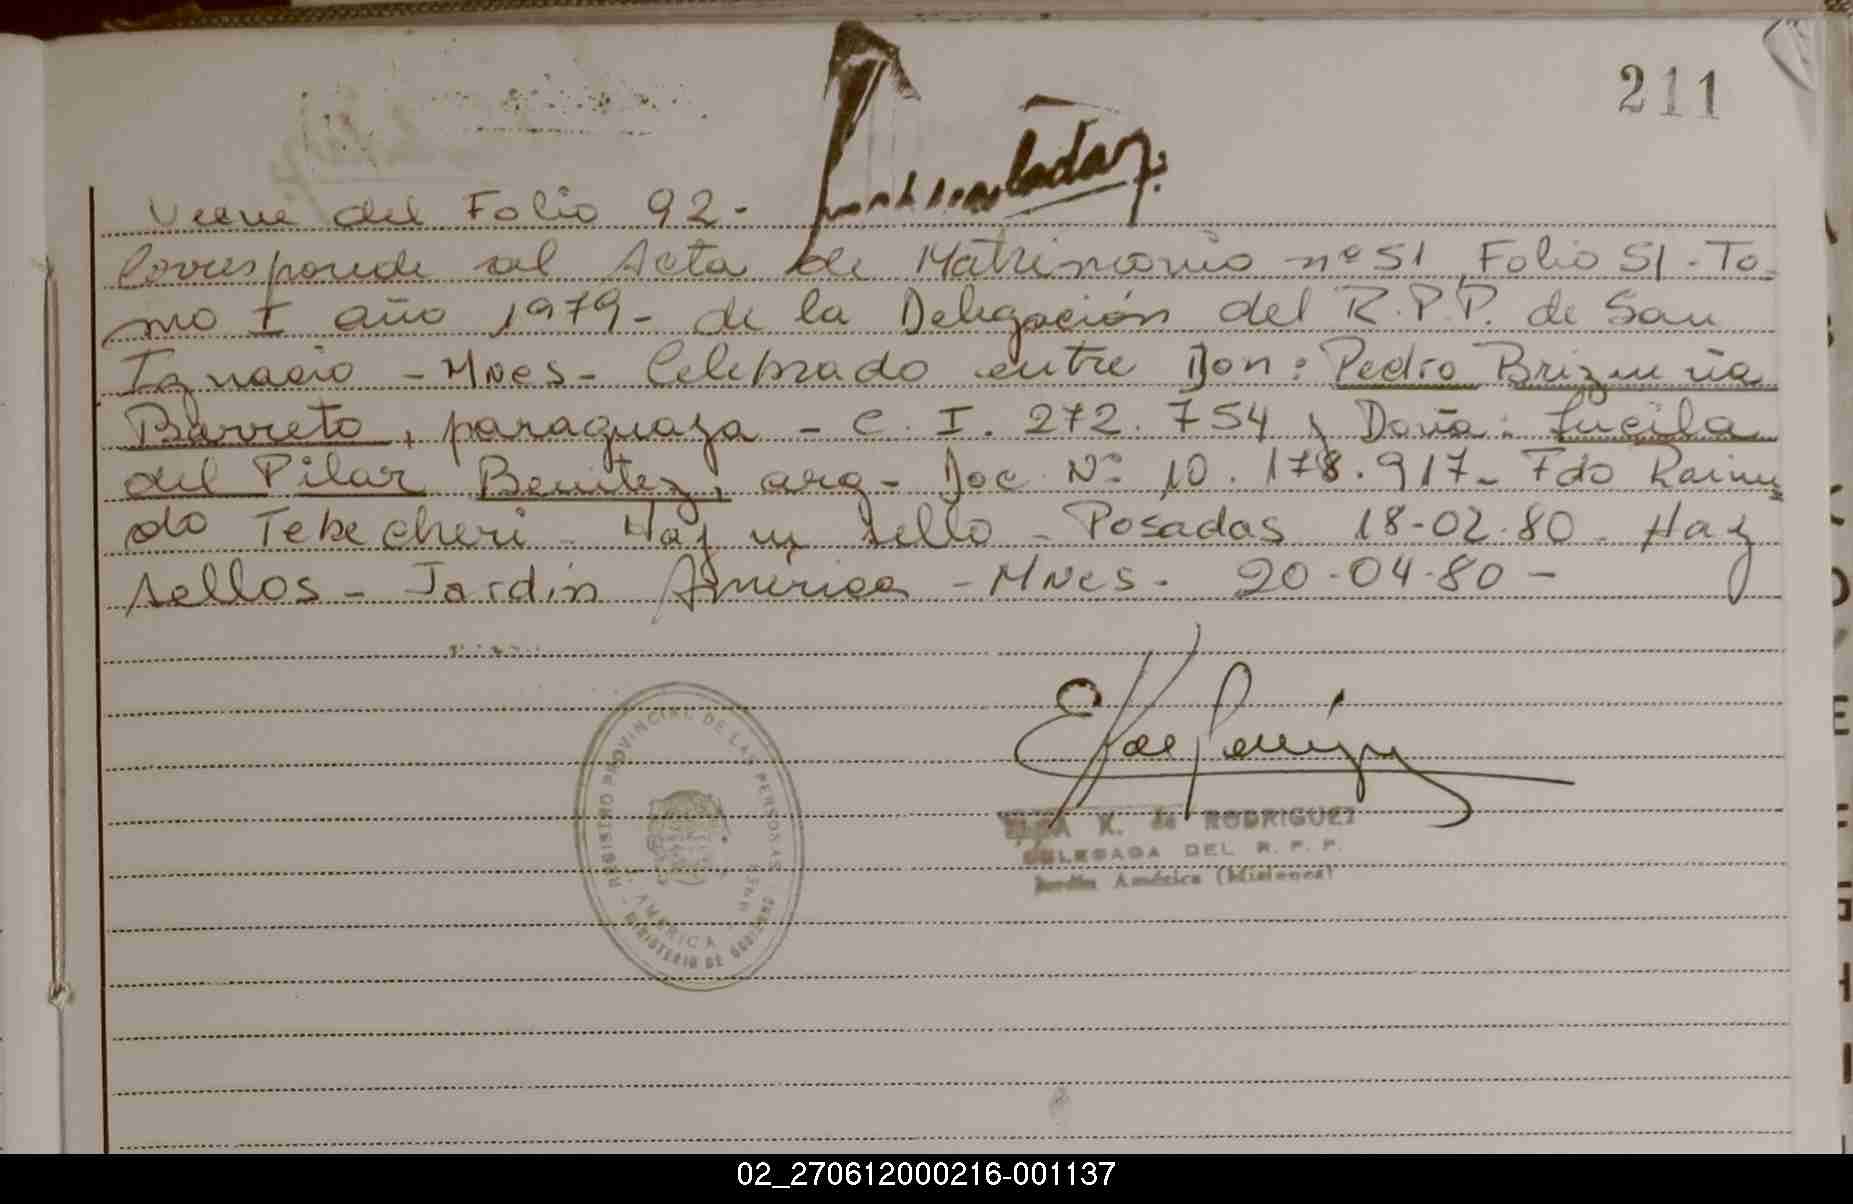 211
Viene del Folio 92-
Corresponde al Acta de Matrimonio nº 51 Folio 51 - To-
mo I año 1979 - de la Delegación del R.P.P. de San
Ignacio - Mnes - Celebrado entre Don: Pedro Brizueña
Barreto, paraguaya - C. I. 272.754 y Doña: Lucila
del Pilar Benitez, arg - Doc Nº 10.178.917 - Fdo Raimu
do Tebecheri - Hay un sello - Posadas 18-02-80. Hay
sellos - Jardín América - Mnes - 20-04-80 -
REGISTRO PROVINCIAL DE LAS PERSONAS
AMERICA
MINISTERIO DE GOBIERNO
K. de RODRIGUEZ
DELEGADA DEL R. P. P.
Jardín América (Misiones)
02_270612000216-001137